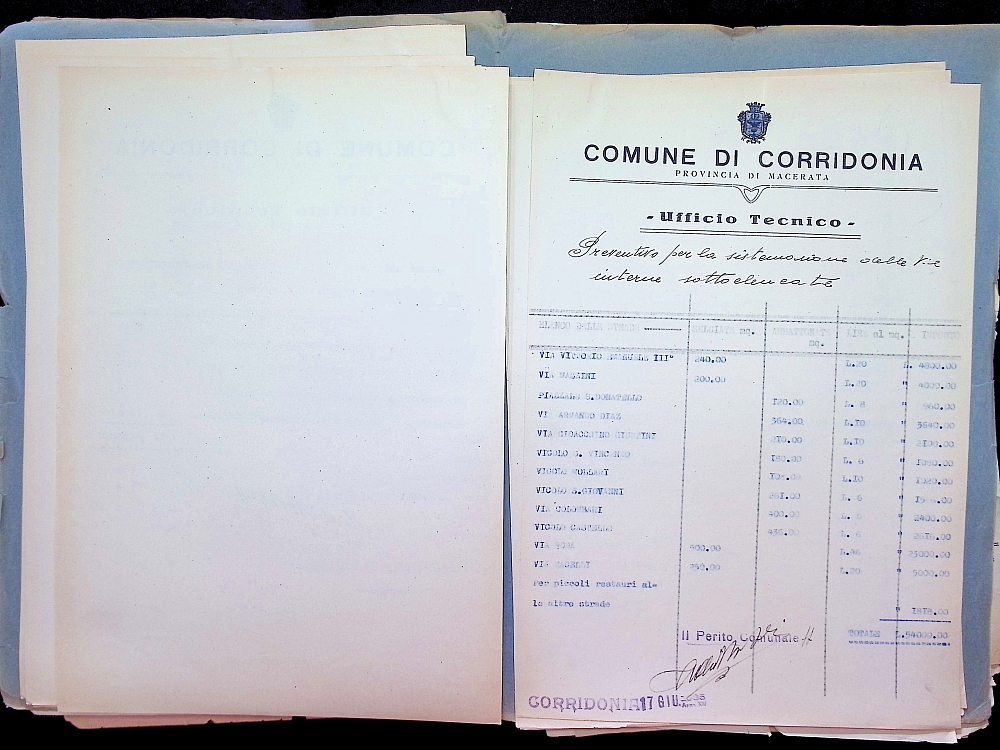 COMUNE DI CORRIDONIA
PROVINCIA DI MACERATA
- Ufficio Tecnico -
Preventivo per la sistemazione delle Vie
interne sottoelencate
ELENCO DELLE STRADE SELCIATE mq. LIRE al mq. IMPORTO
mq.
VIA VITTORIO EMANUELE III° 240.00 L.20 L. 4800.00
VIA MAZZINI 200.00 L.20 " 4000.00
PIAZZALE S.DONATELLO 120.00 L. 8 " 960.00
VIA ARMANDO DIAZ 364.00 L.10 " 3640.00
VIA GIOACCHINO 210.00 L.10 " 2100.00
VICOLO S. VINCENZO 180.00 L. 6 " 1080.00
VICOLO L.10 "
VICOLO S.GIOVANNI L. 6 "
VIA COLOMBARI 400.00 L. 6 " 2400.00
VICOLO L. 6 "
VIA 500.00 " 23000.00
VIA 250.00 L.20 " 5000.00
Per piccoli restauri al=
le altre strade " 1818.00
TOTALE L.54000.00
Il Perito Comunale
CORRIDONIA 17 GIU. 1935